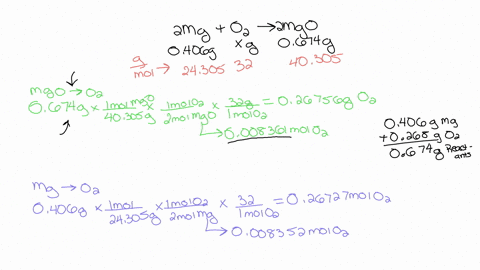 2Mg + O₂ → 2MgO
0.406g xg 0.674g
g/mol → 24.305 32 40.305
MgO → O₂
0.674g × 1mol MgO/40.305g × 1molO₂/2molMgO × 32g/1molO₂ = 0.26756g O₂
→ 0.008361molO₂
0.406g mg
+0.268g O₂
0.674g Reactants
Mg → O₂
0.406g × 1mol/24.305g × 1molO₂/2molMg × 32/1molO₂ = 0.26727molO₂
→ 0.008352molO₂